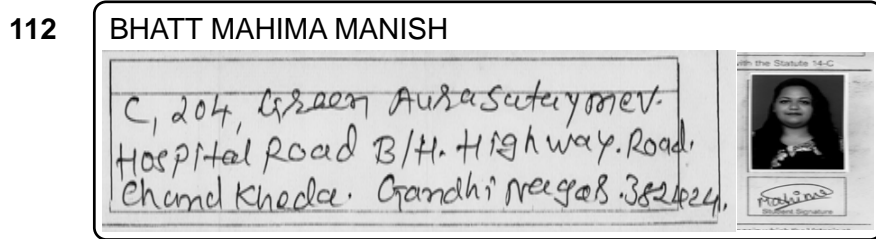 112
BHATT MAHIMA MANISH
C, 204, Green Aurasataymev.
Hospital Road B/H. Highway. Road.
Chand Kheda. Gandhi Nagar. 382424.
with the Statute 14-C
Mahima
Student Signature